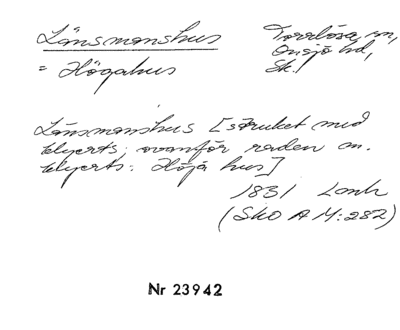 Länsmanshus Torrlösa sn,
= Högahus Onsjö hd,
Sk.
Länsmanshus [struket med
blyerts; ovanför raden m.
blyerts: Höja hus]
1831 Lomk
(SkO A M:282)
Nr 23942